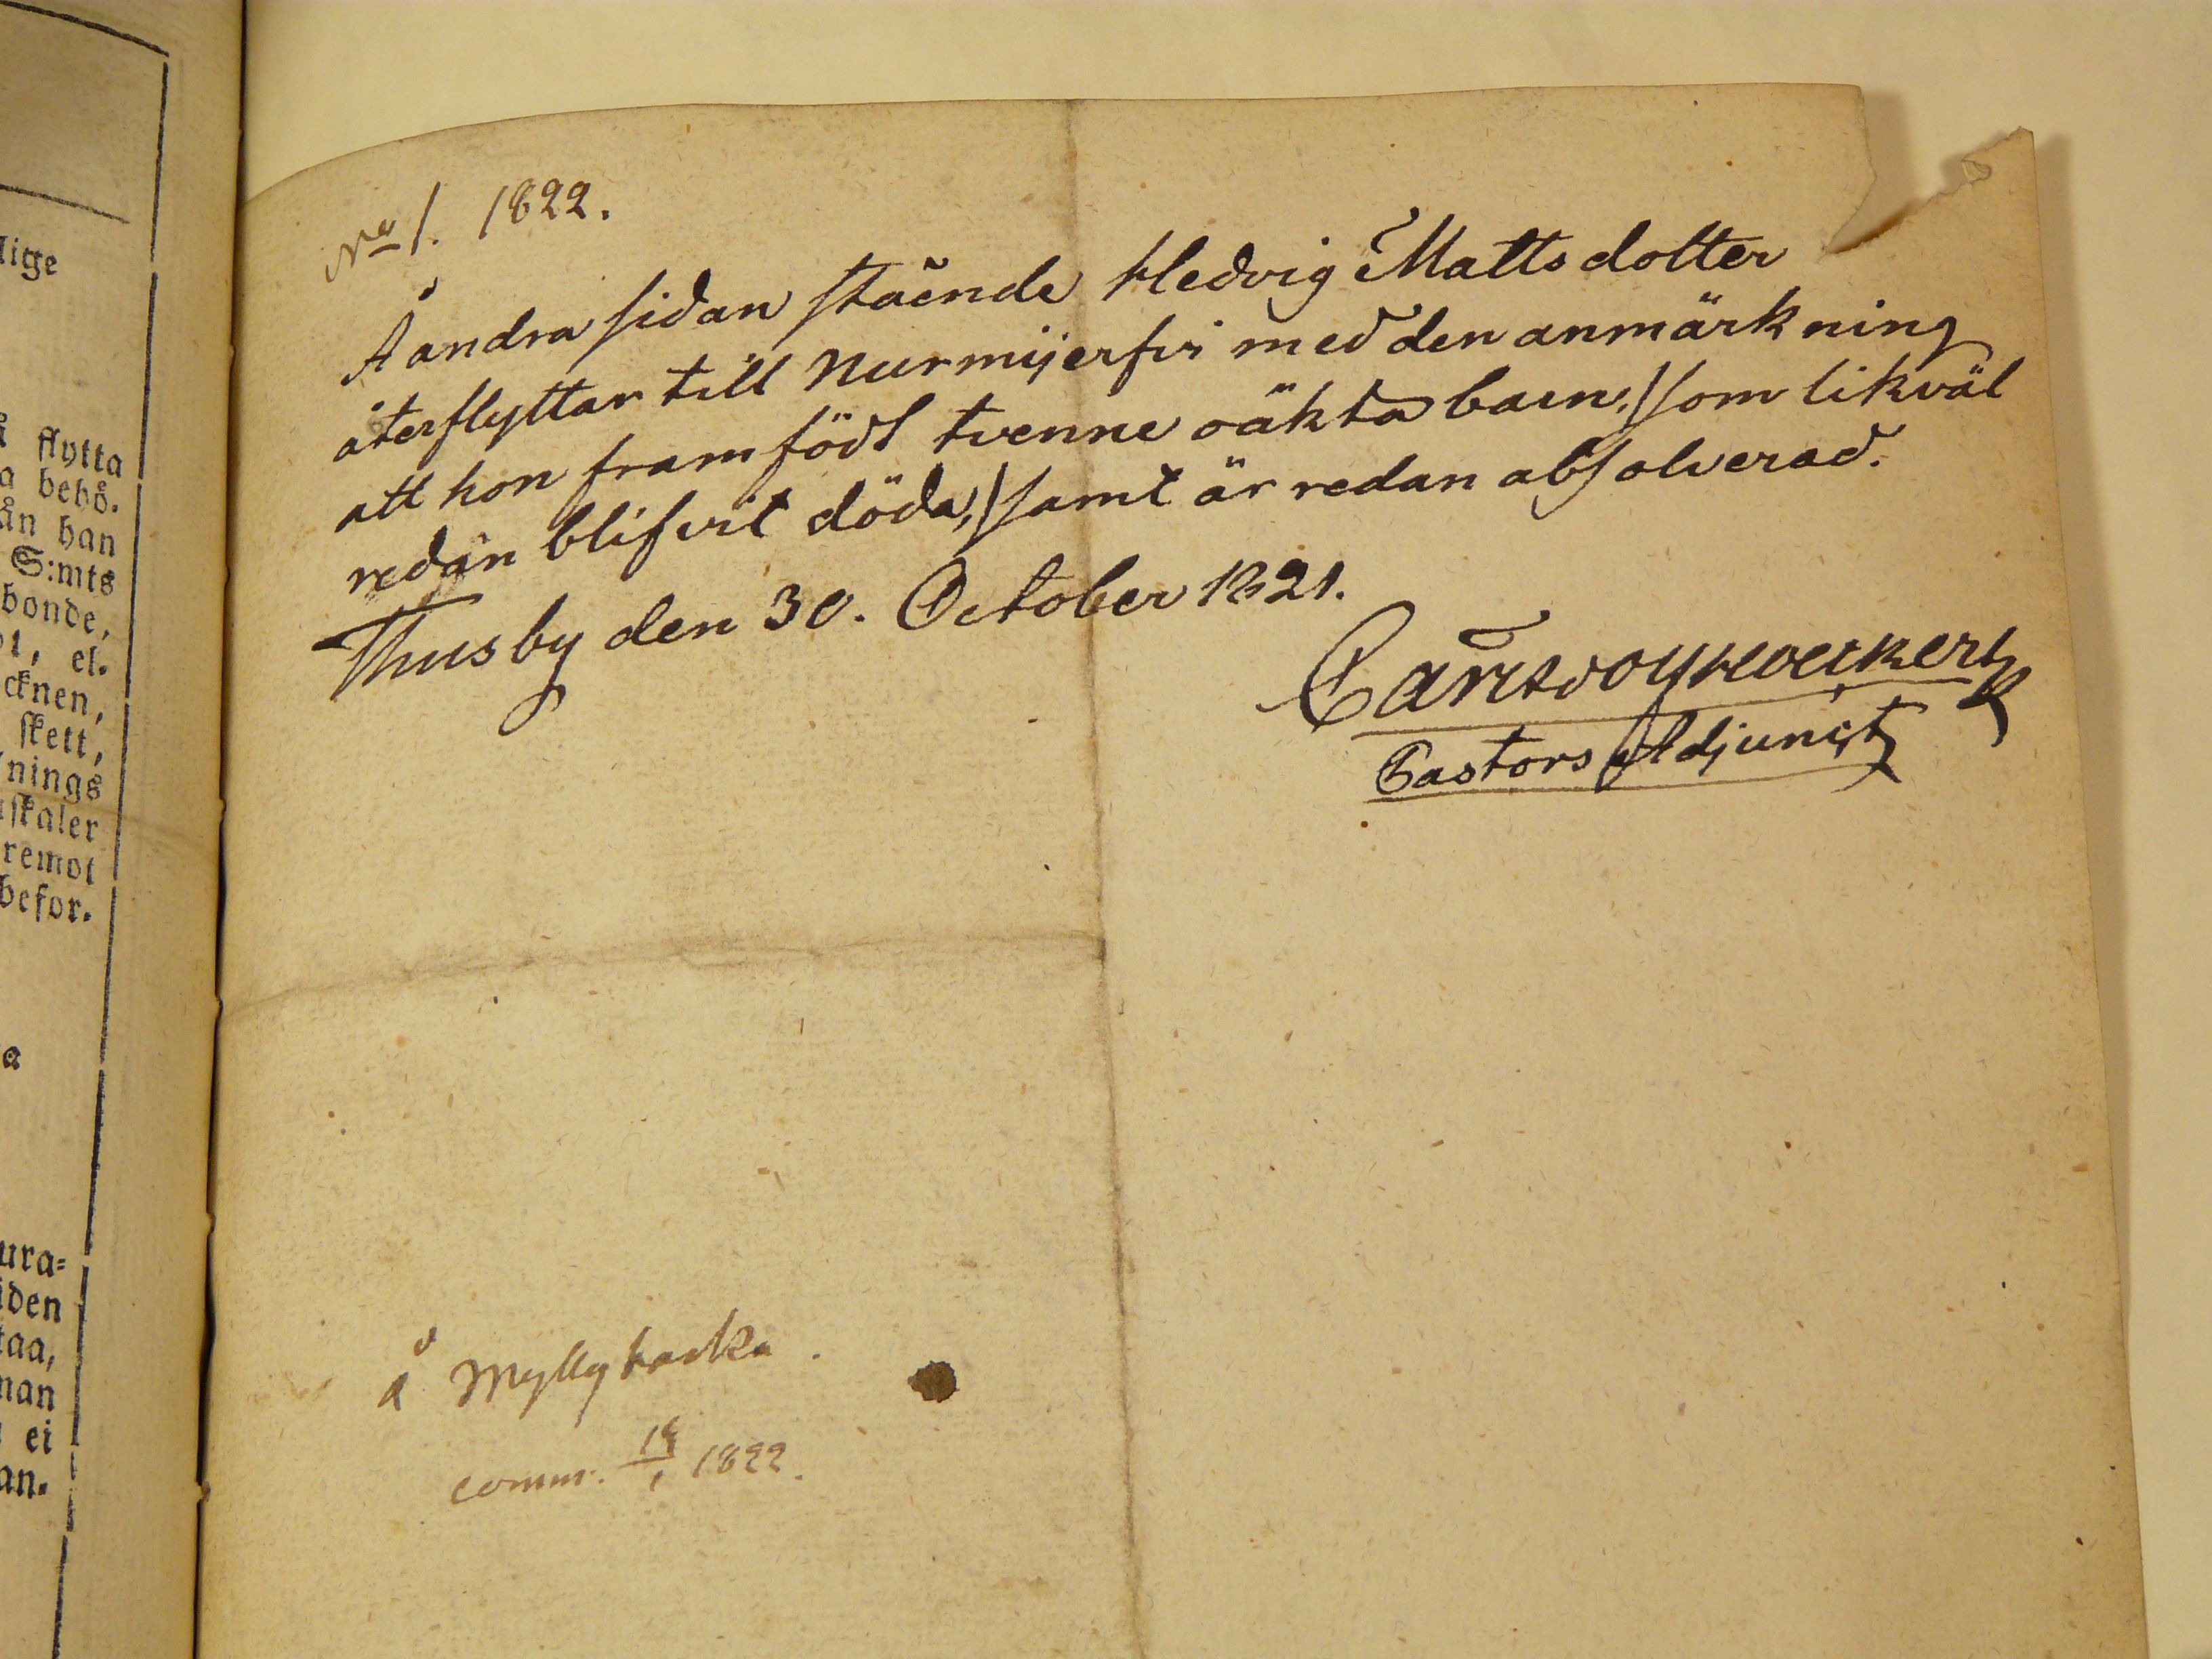 litge
å flytta
a behö.
ån han
S:mts
bonde,
, el.
cknen,
skett,
nings
skaler
remot
befor.
a
ura=
iden
taa,
nan
ei
an.
No 1. 1822.
Å andra sidan stående Hedvig Mattsdotter
återflyttar till Nurmijerfvi med den anmärkning
att hon framfödt tvenne oäkta barn, /som likväl
redan blifvit döda,/ samt är redan absolverad.
Thusby den 30. October 1821.
Pastors Adjunct
å Myllybacka.
comm. 1822.